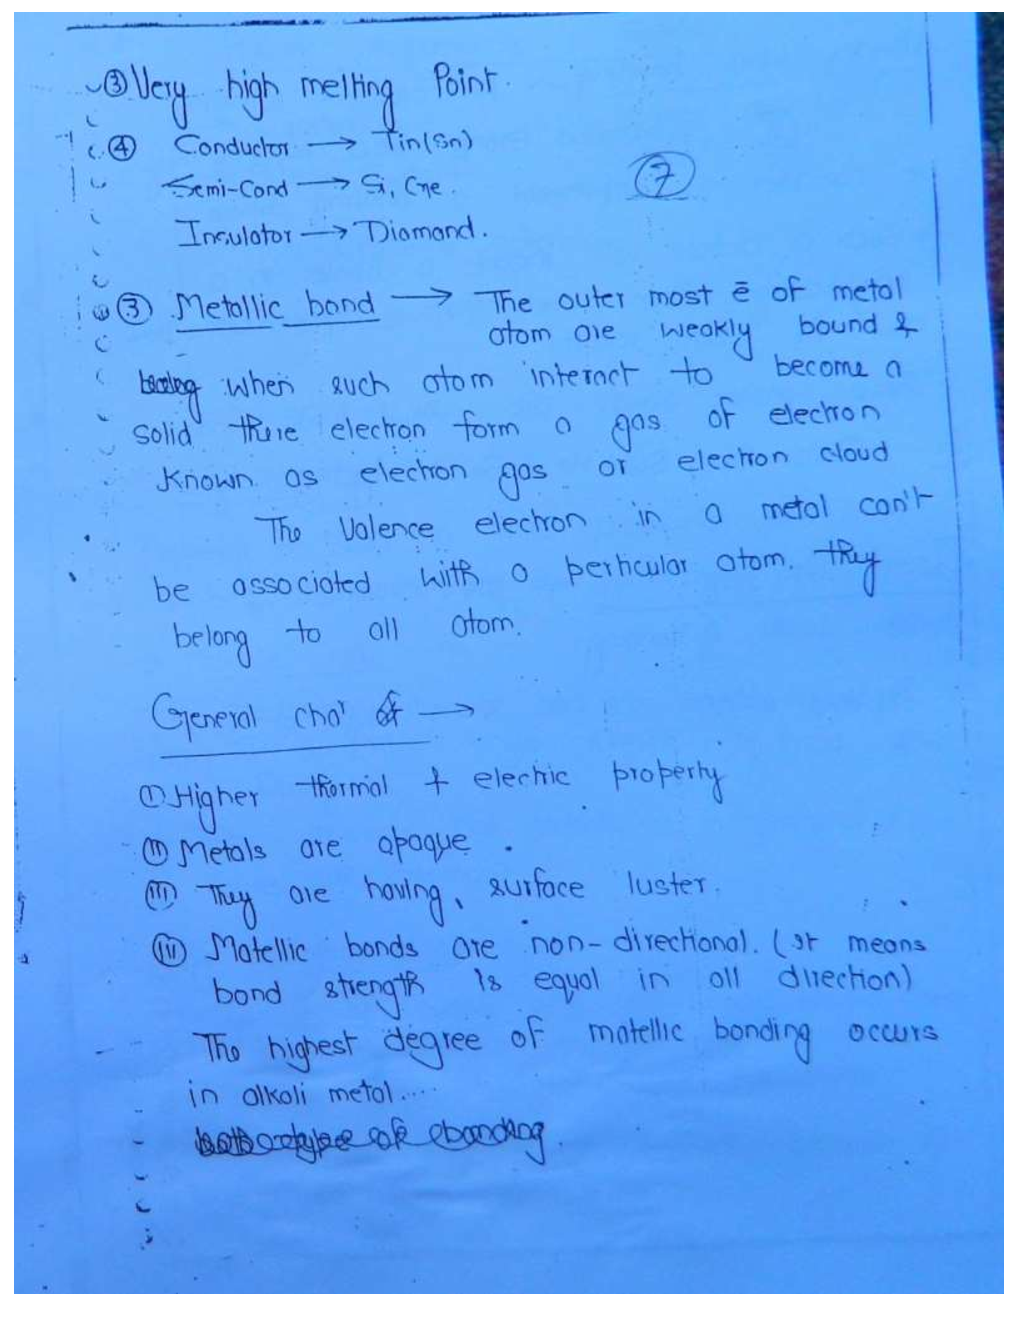 ③ Very high melting Point.
④ Conductor → Tin(Sn)
⑦
Semi-Cond → Si, Ge.
Insulator → Diamond.
③ Metallic bond → The outer most ē of metal
atom are weakly bound &
when such atom interact to become a
solid there electron form a gas of electron
Known as electron gas or electron cloud
The Valence electron in a metal can't
be associated with a perticular atom. they
belong to all atom.
General char of →
(I) Higher thermal & electric property
(II) Metals are opaque.
(III) They are having, surface luster.
(iii) Matellic bonds are non-directional. (It means
bond strength is equal in all direction)
The highest degree of matellic bonding occurs
in alkali metal....